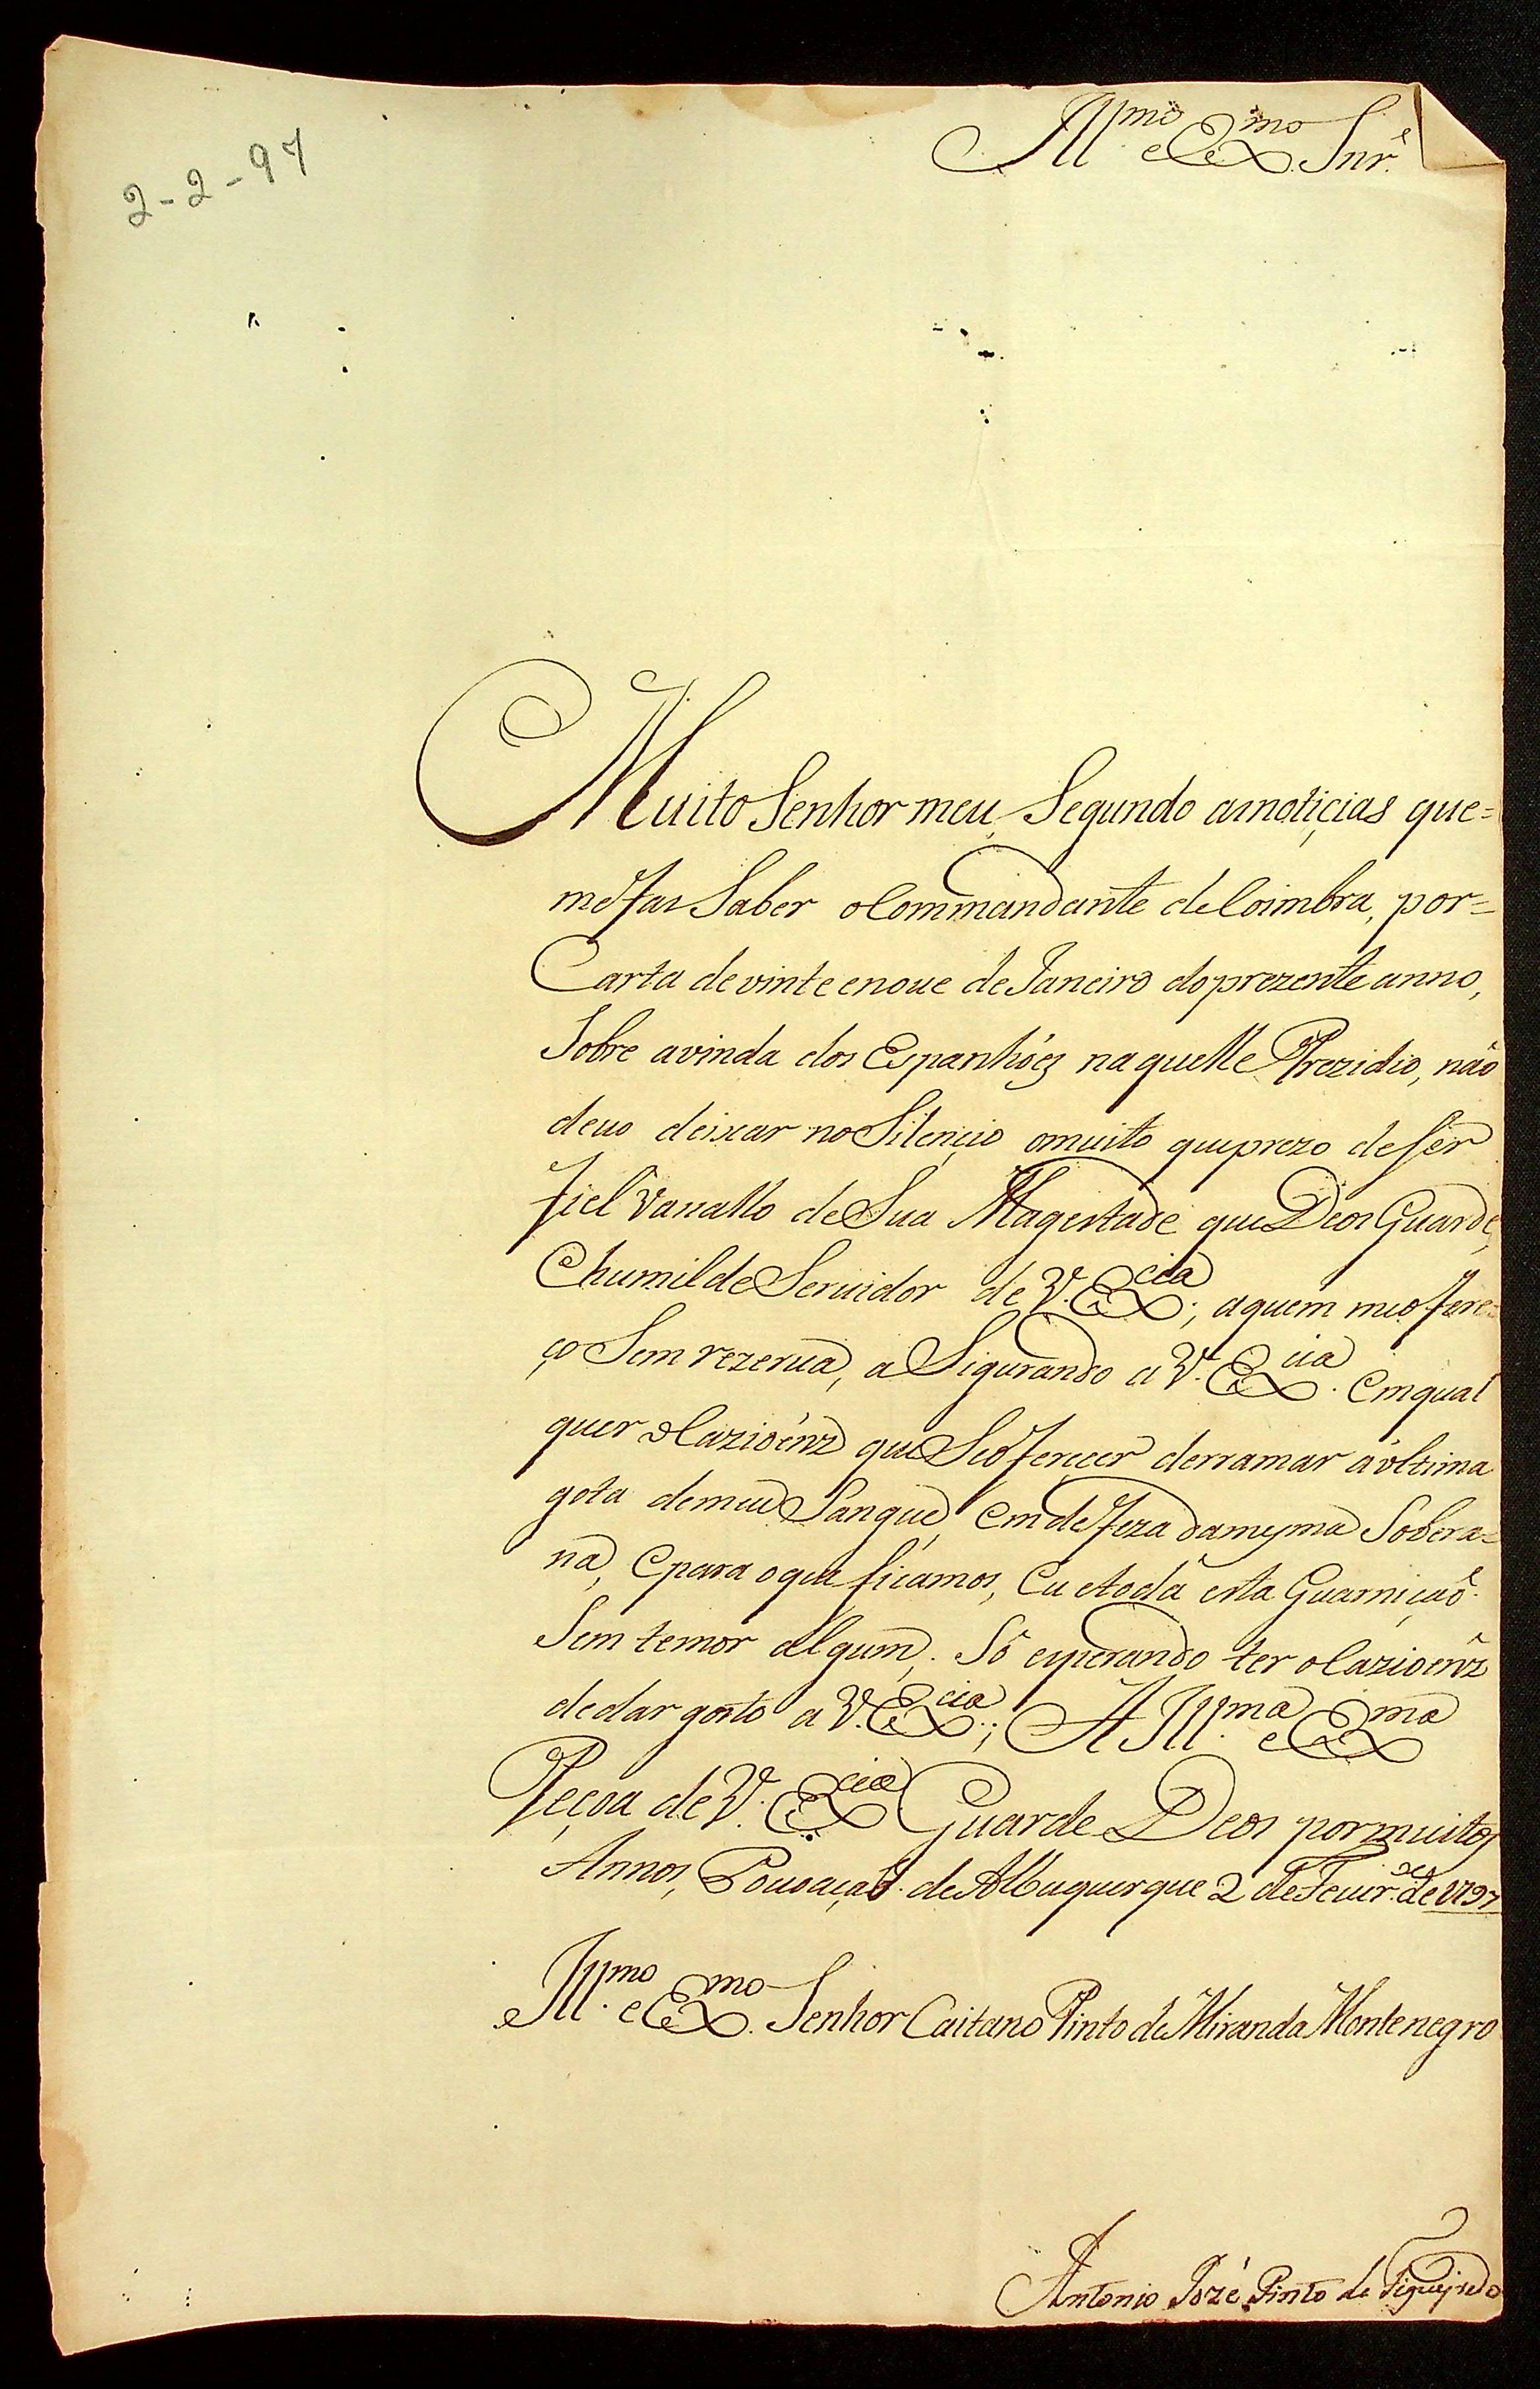 2-2-97
Ill.mo e Ex.mo Snr.e
Muito Senhor meu, Segundo as noticias que=
me fas Saber o Commandante de Coimbra, por=
Carta de vinte e noue de Janeiro do prezente anno,
Sobre a vinda dos Espanhóes naquelle Prezidio, não
deuo deixar no Silencio o muito que prezo de ser
fiel Vassallo de Sua Magestade que Deos Guarde,
e humilde Seruidor de V. Ex.cia; a quem me offere=
ço Sem rezerua, a Sigurando a V. Ex.cia em qual
quer Occazióens que Se offerecer derramar a vltima
gota de meu Sangue, em deffeza da mesma Sobera=
na, e para o que ficamos, eu e toda esta Guarnição
Sem temor algum, Só esperando ter occazioens
de dar gosto a V. Ex.cia; A Ill.ma e Ex.ma
Peçoa de V. Ex.cia Guarde Deos por muitos
Annos, Pouoação de Albuquerque 2 de Feuer.o de 1797
Ill.mo e Ex.mo Senhor Caitano Pinto de Miranda Montenegro
Antonio Jozé Pinto de Figueiredo